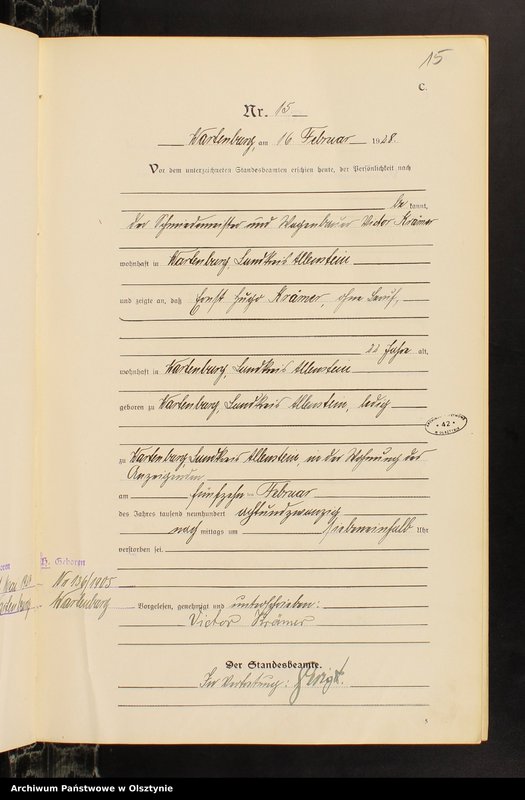 15
C.
Nr. 15
Wartenburg, am 16 Februar 1928.
Vor dem unterzeichneten Standesbeamten erschien heute, der Persönlichkeit nach
be kannt,
der Schmiedemeister und Wagenbauer Victor Krämer
wohnhaft in Wartenburg, Landkreis Allenstein
und zeigte an, daß Ernst Hugo Krämer, ohne Beruf,
22 Jahre alt,
wohnhaft in Wartenburg, Landkreis Allenstein
geboren zu Wartenburg, Landkreis Allenstein, ledig
42
zu Wartenburg, Landkreis Allenstein, in der Wohnung des
Anzeigenden
am fünfzehn ten Februar
des Jahres tausend neunhundert achtundzwanzig
nach mittags um siebeneinhalb Uhr
verstorben sei.
H. Geboren
Nr 136/1905
Wartenburg
Vorgelesen, genehmigt und unterschrieben:
Victor Krämer
Der Standesbeamte.
In Vertretung: Voigt.
5
Archiwum Państwowe w Olsztynie